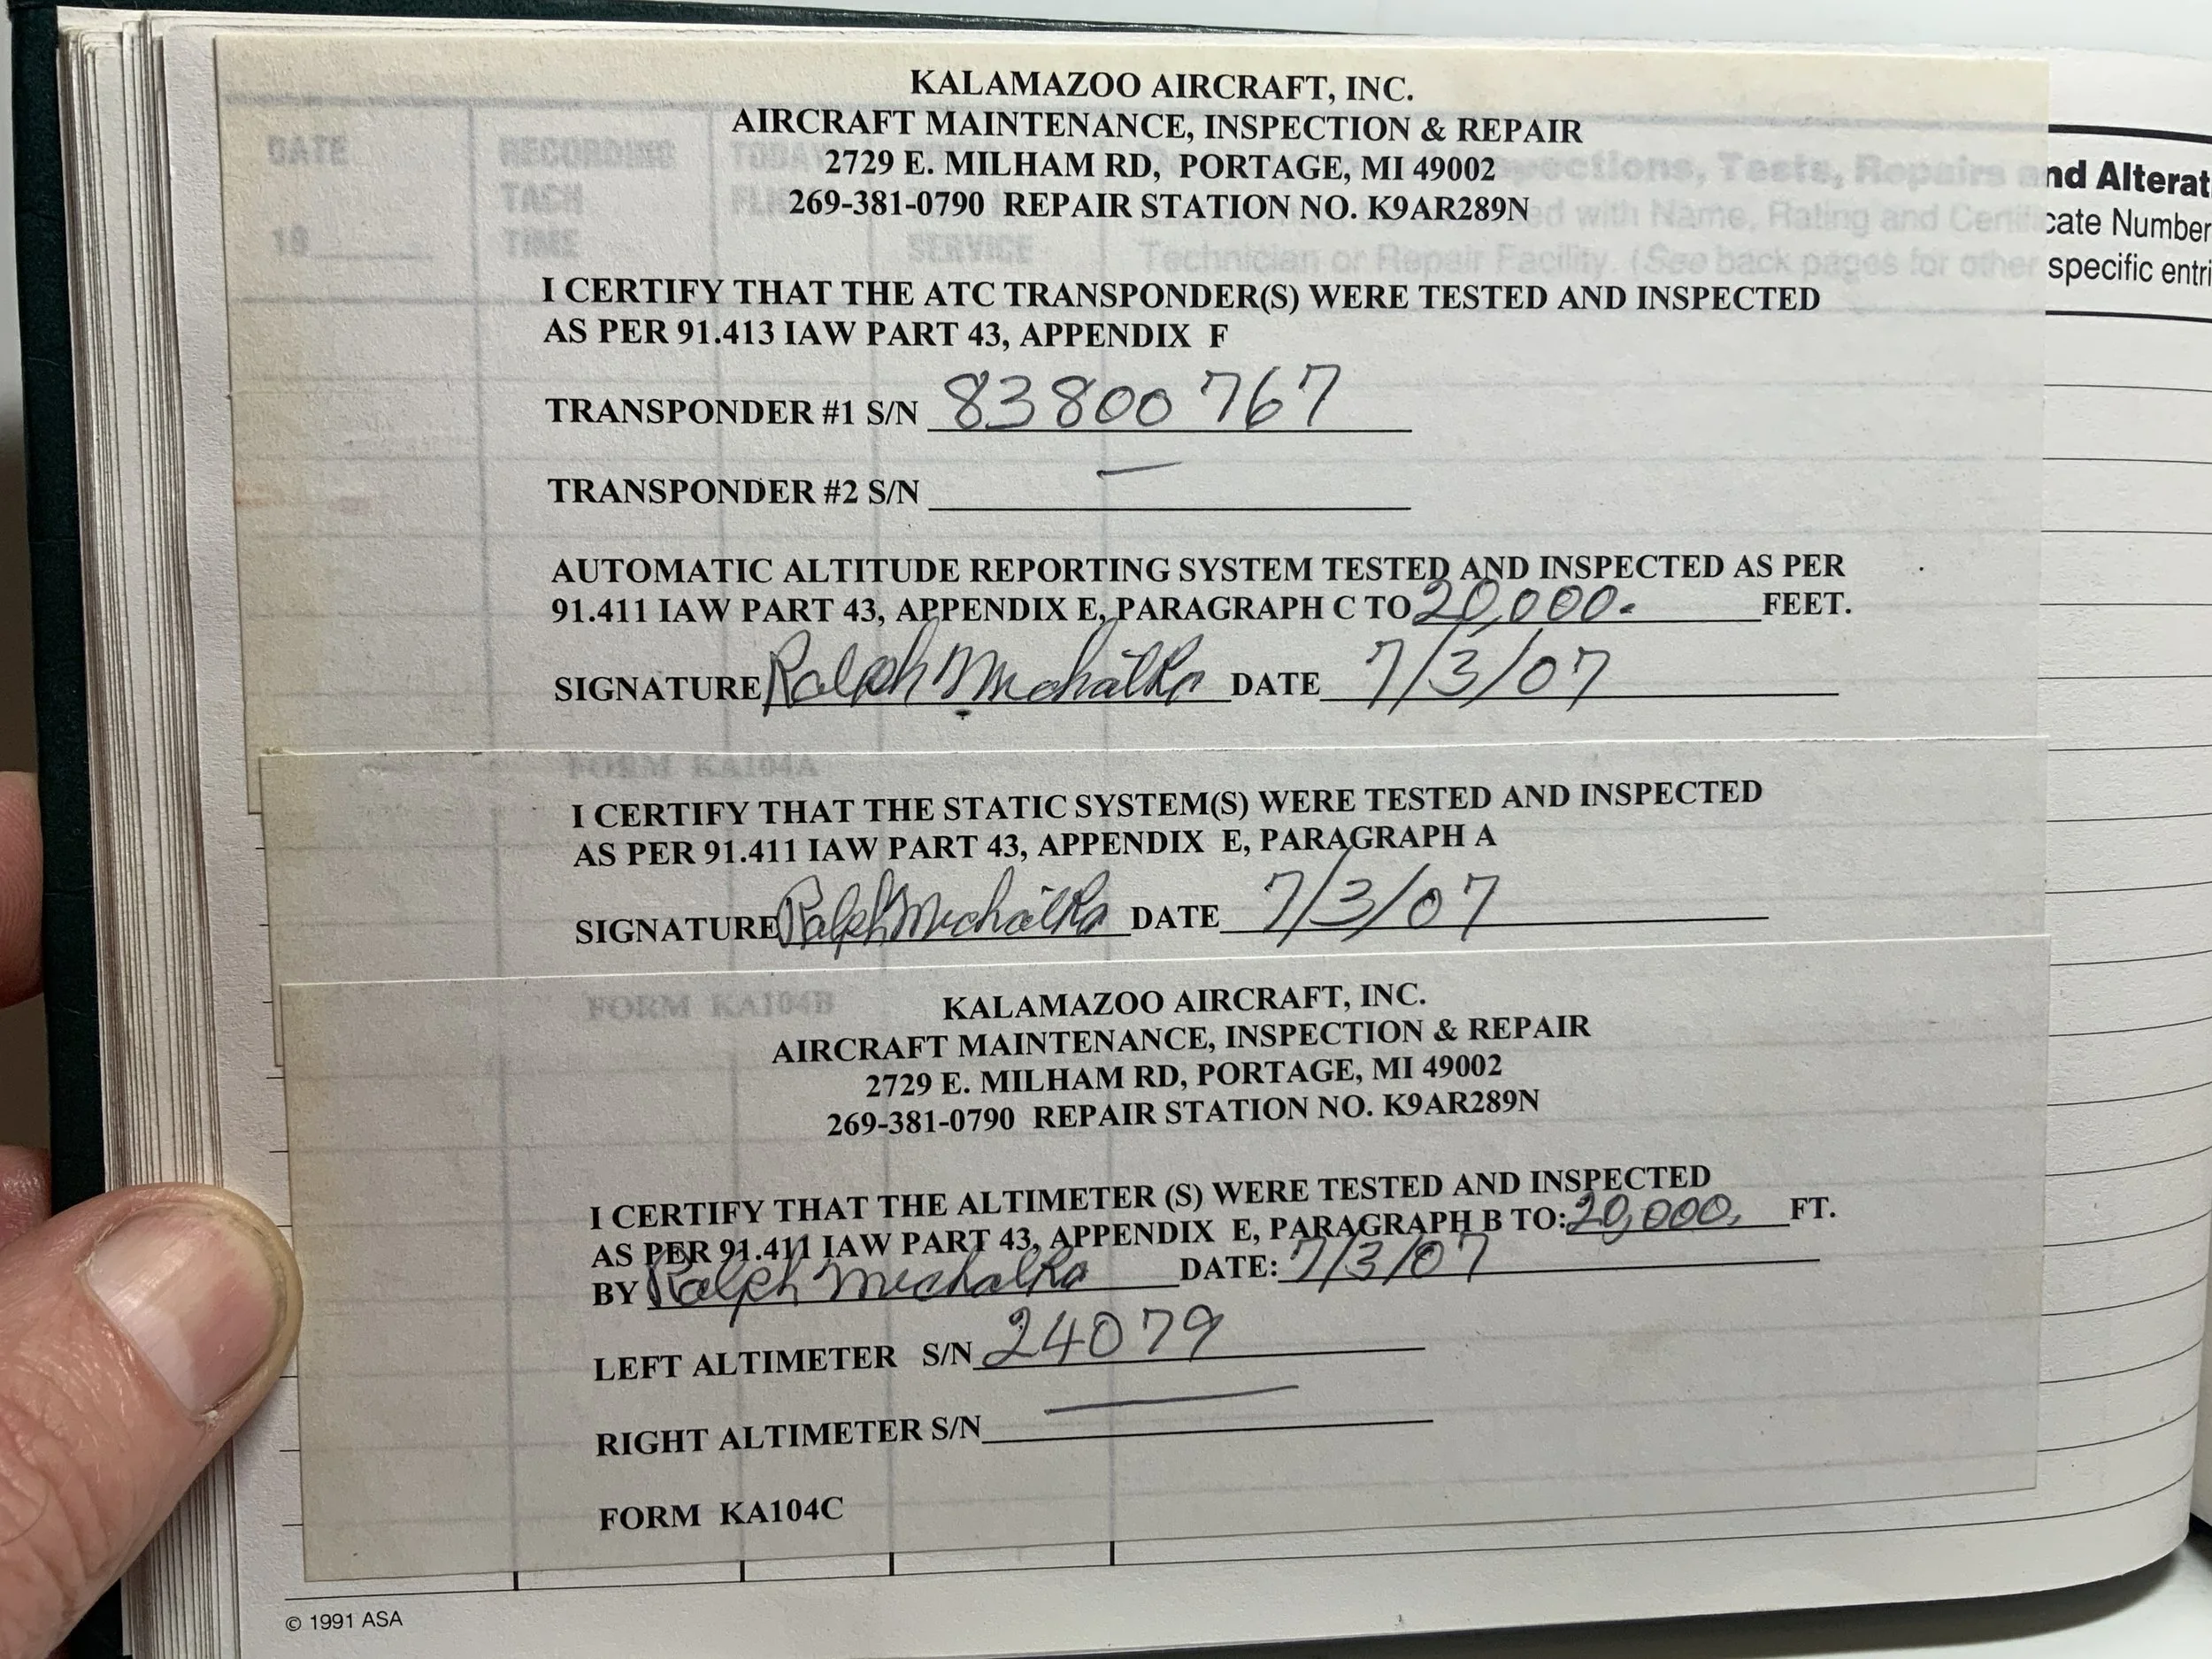 KALAMAZOO AIRCRAFT, INC.
AIRCRAFT MAINTENANCE, INSPECTION & REPAIR
2729 E. MILHAM RD, PORTAGE, MI 49002
269-381-0790 REPAIR STATION NO. K9AR289N
DATE RECORDING TODAY
TACH FLI
19____ TIME SERVICE
spections, Tests, Repairs and Alterat
ed with Name, Rating and Certificate Number
Technician or Repair Facility. (See back pages for other specific entri
I CERTIFY THAT THE ATC TRANSPONDER(S) WERE TESTED AND INSPECTED
AS PER 91.413 IAW PART 43, APPENDIX F
TRANSPONDER #1 S/N 83800767
TRANSPONDER #2 S/N —
AUTOMATIC ALTITUDE REPORTING SYSTEM TESTED AND INSPECTED AS PER
91.411 IAW PART 43, APPENDIX E, PARAGRAPH C TO 20,000. FEET.
SIGNATURE Ralph Michalka DATE 7/3/07
FORM KA104A
I CERTIFY THAT THE STATIC SYSTEM(S) WERE TESTED AND INSPECTED
AS PER 91.411 IAW PART 43, APPENDIX E, PARAGRAPH A
SIGNATURE Ralph Michalka DATE 7/3/07
FORM KA104B
KALAMAZOO AIRCRAFT, INC.
AIRCRAFT MAINTENANCE, INSPECTION & REPAIR
2729 E. MILHAM RD, PORTAGE, MI 49002
269-381-0790 REPAIR STATION NO. K9AR289N
I CERTIFY THAT THE ALTIMETER (S) WERE TESTED AND INSPECTED
AS PER 91.411 IAW PART 43, APPENDIX E, PARAGRAPH B TO: 20,000. FT.
BY Ralph Michalka DATE: 7/3/07
LEFT ALTIMETER S/N 24079
RIGHT ALTIMETER S/N —
FORM KA104C
© 1991 ASA